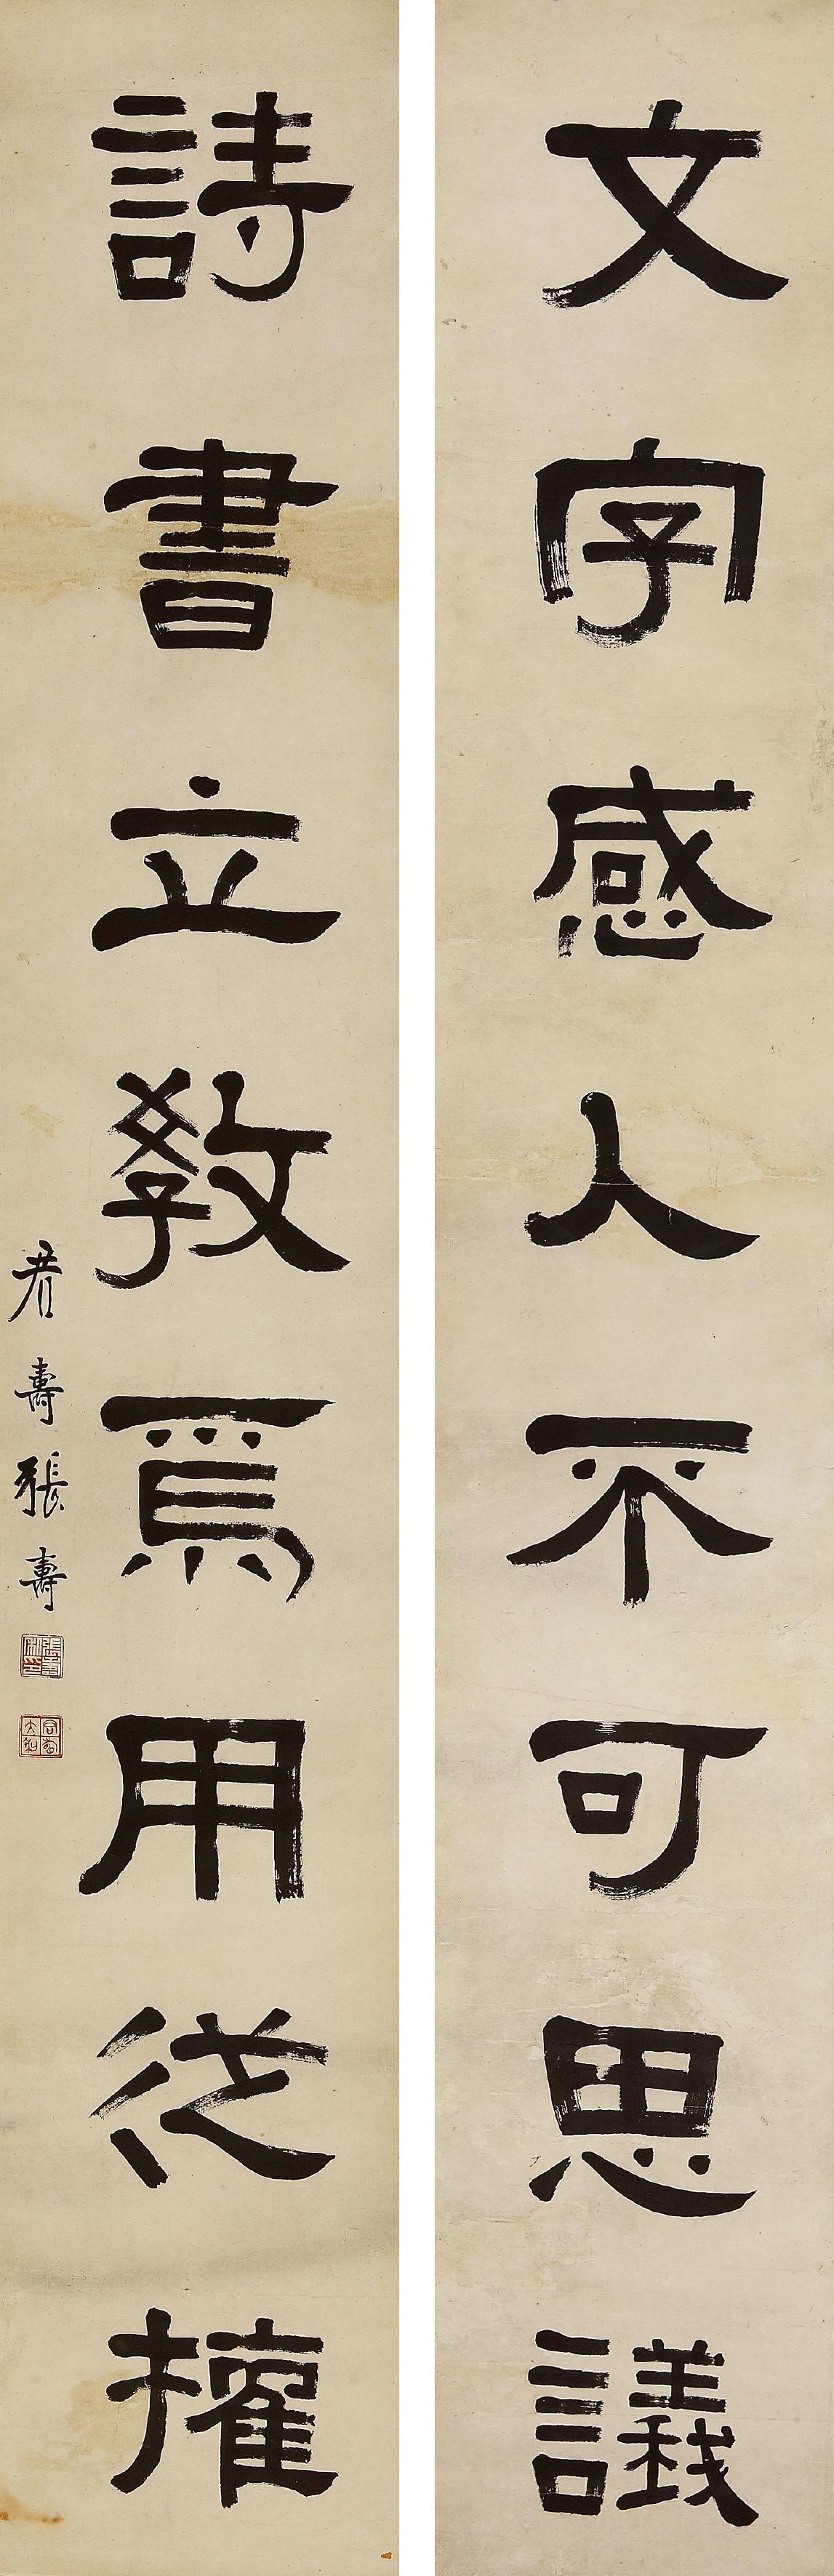 文字感人不可思議
詩書立教焉用從權
君壽張壽